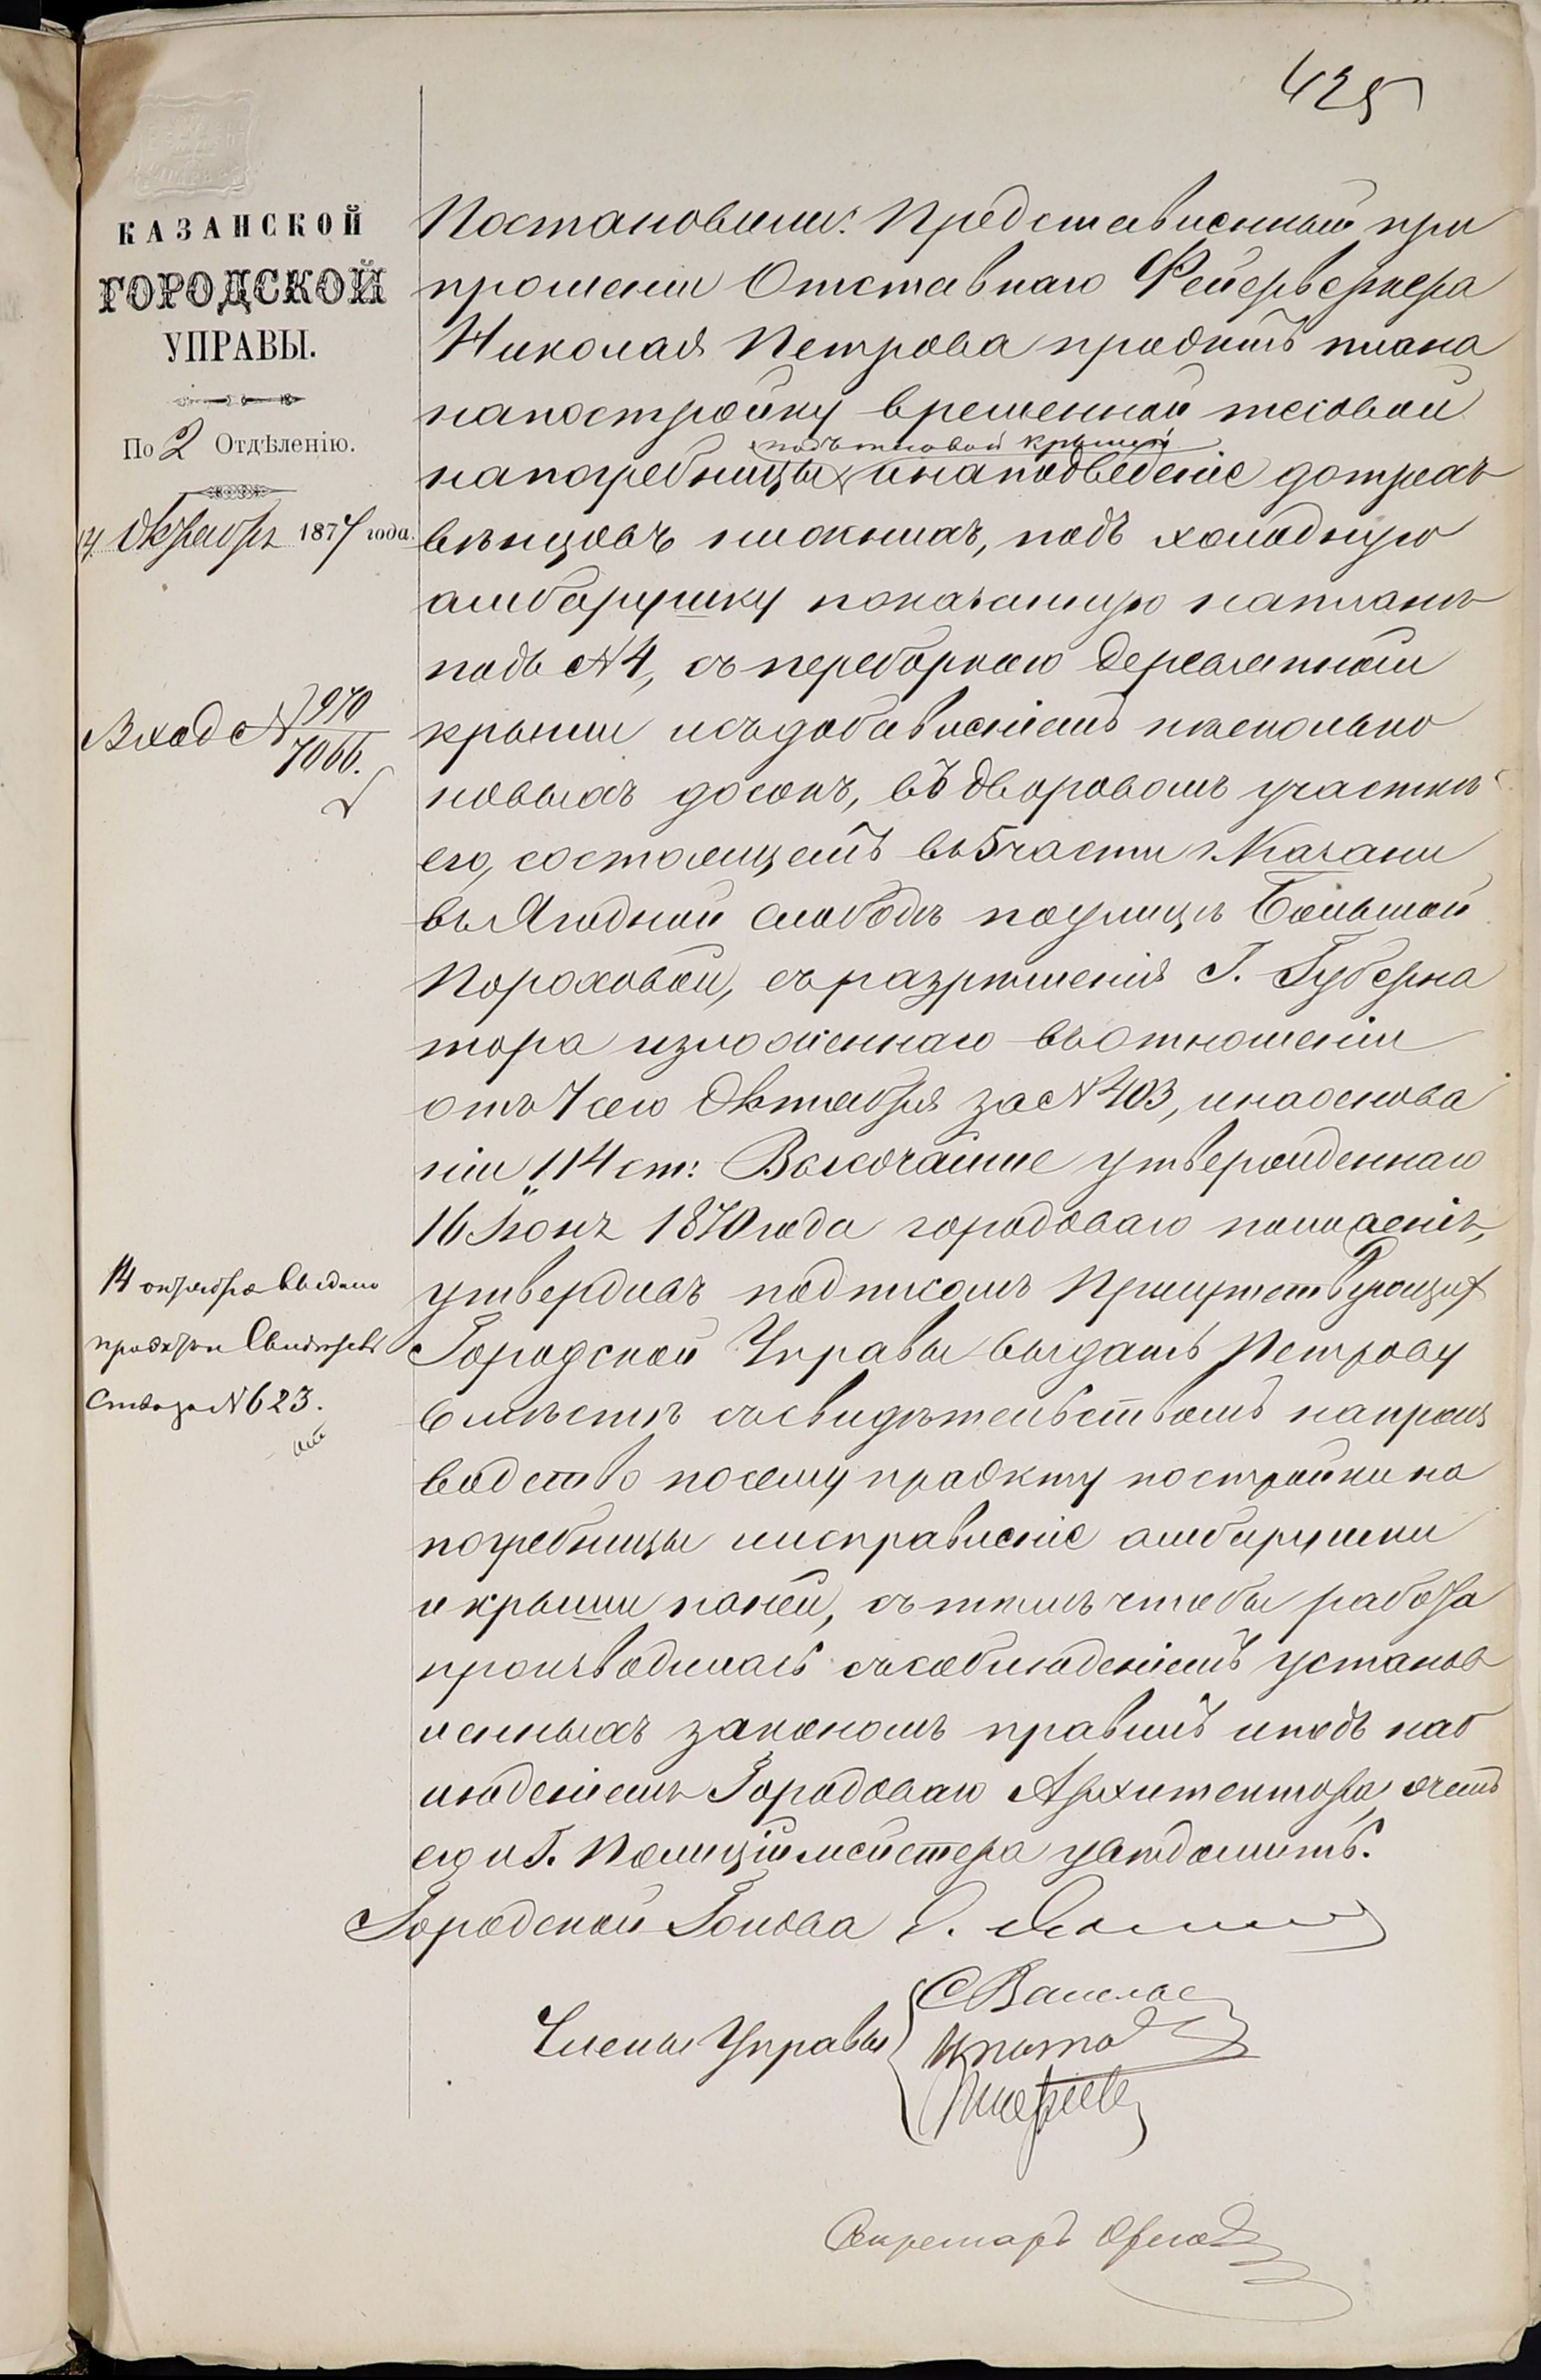 425
КАЗАНСКОЙ
ГОРОДСКОЙ
УПРАВЫ.
По 2 Отдѣленію.
14 Октября 1877 года.
Вход №970
7066.
14 октября выданъ
проэктъ и Свидѣтель
ство за №623.
Постановили: Представленный при
прошеніи Отставнаго Фейерверкера
Николая Петрова проэктъ плана
на постройку временной тесовой
подъ тесовой крышей
напогребницы и на подведеніе до трехъ
вѣнцовъ нижнихъ, подъ холодную
амбарушку показанную на планѣ
подъ №4, съ переборкою деревянной
крыши и съ добавленіемъ нѣсколько
новыхъ досокъ, въ дворовомъ участкѣ
его, состоящемъ въ 5 части г. Казани
въ Ягодной слободѣ по улицѣ Большой
Пороховой, съ разрѣшенія Г. Губерна
тора изложеннаго въ отношеніи
отъ 7 сего Октября за №403, и на основа
ніи 114 ст: Высочайше утвержденнаго
16 Іюня 1870 года городоваго положенія,
утвердивъ подписомъ Присутствующих
Городской Управы выдать Петрову
вмѣстѣ съ свидѣтельствомъ на произ
водство по сему проэкту постройки на
погребницы и исправленіе амбарушки
и крыши на ней, съ тѣмъ чтобы работа
производилась съ соблюденіемъ установ
ленныхъ закономъ правилъ и подъ наб
людениемъ Городоваго Архитектора, о чемъ
его и Г. Полиціймейстера увѣдомить.
Городской Голова
Члены Управы
Секретарь Орлов